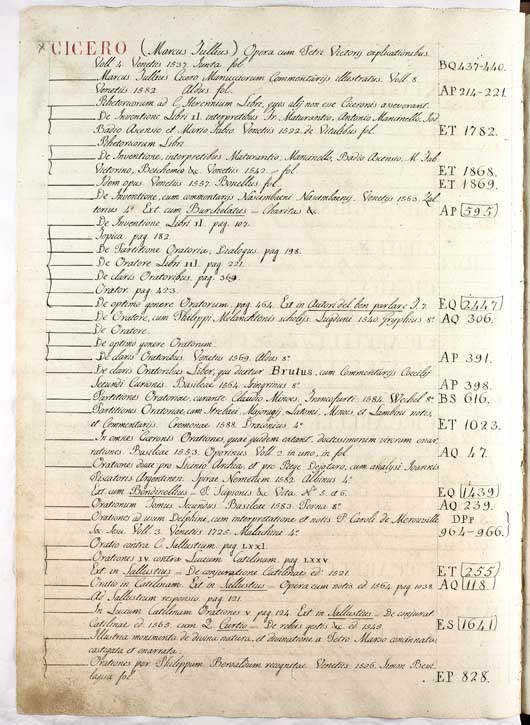 CICERO (Marcus Tullius) Opera cum Petri Victorij explicationibus.
Voll. 4. Venetiis 1537. Junta fol. BQ 437-440.
Marcus Tullius Cicero Manucijorum Commentarijs illustratus Voll. 8.
Venetiis 1582 Aldus fol. AP 214-221.
Rhetoricorum ad C. Herennium Libri, quos alij non eue Ciceronis asseverant.
De Inventione Libri II. interpretibus Fr. Maturantio, Antonio Mancinello, Jod.
Badio Ascensio et Mario Fabio. Venetiis 1522. de Vitalibus fol. ET 1782.
Rhetoricorum Libri
De Inventione, interpretibus Maturantio, Mancinello, Badio Ascensio, M. Fab.
Victorino, Beichemio &c. Venetiis 1542. – fol. ET 1868.
Idem opus Venetiis 1557. Bonellus fol. ET 1869.
De Inventione, cum commentarijs Nascimbaeni Nascimbaenij. Venetiis 1563. Zal-
torius 4º Ext. cum Burchelatus – Charitas & AP 595
De Inventione Libri II. pag. 107.
Topica pag. 182
De Partitione Oratoria, Dialogus, pag. 198.
De Oratore Libri III. pag. 221.
De claris Oratoribus, pag. 369.
Orator pag. 423.
De optimo genere Oratorum. pag. 464. Ext. in Autori del ben parlare T. 7. EQ 2447
De Oratore, cum Philippi Melanchthonis scholijs Lugduni 1540. Gryphius 8º AQ 306.
De Oratore.
De optimo genere Oratorum.
De claris Oratoribus. Venetiis 1569. Aldus 8º AP 391.
De claris Oratoribus Liber, qui dicitur Brutus, cum Commentarijs Coelij
Secundi Curionis. Basileae 1564. Iringrinus 8º AP 398.
Partitiones Oratoriae, curante Claudio Minoes. Francofurti. 1584. Wechel 8º BS 616.
Partitiones Oratoriae, cum Strebaei, Majoragij, Latomi, Minoes, et Lambini notis,
et Commentarijs. Cremonae 1588. Draconius 4º ET 1023.
In omnes Ciceronis Orationes, quae quidem extant, doctissimorum virorum enar-
rationes. Basileae 1553. Oporinus Voll. 2. in uno, in fol. AQ 47.
Orationes duae pro Licinio Archia, et pro Rege Dejotaro, cum analysi Joannis
Piscatoris Argentinen. Spirae Nemetum 1582 Albinus 4º
Ext. cum Bondinellius – P. Scipionis & Vita Nº 5. et 6. EQ 1439
Orationum Tomus Secundus Basileae 1583 Perna 8º AQ 239.
Orationes ad usum Delphini, cum interpretatione et notis P. Caroli de Merouville
Soc. Jesu. Voll. 3. Venetiis 1725. Malachine 4º DPF 964-966.
Oratio contra C. Sallustium. pag. LXXI
Orationes IV. contra Lucium Catilinam, pag. LXXV.
Ext. in Sallustius – De conjuratione Catilinae ed. 1521. ET 255
Oratio in Catilinam. Ext. in Sallustius – Opera cum notis ed. 1564. pag. 1038. AQ 118
Ad Sallustium responsio pag. 121.
In Lucium Catilinam Orationes V. pag. 124. Ext. in Sallustius – De conjurat.
Catilinae ed. 1563. cum Q. Curtio – De rebus gestis & ed. 1545. ES 1641
Illustria monimenta de divina natura, et divinatione a Petro Marso concinnata,
castigata et enarrata.
Orationes per Philippum Beroaldum recognitae Venetiis 1526. Simon Bevi-
laqua fol. EP 828.